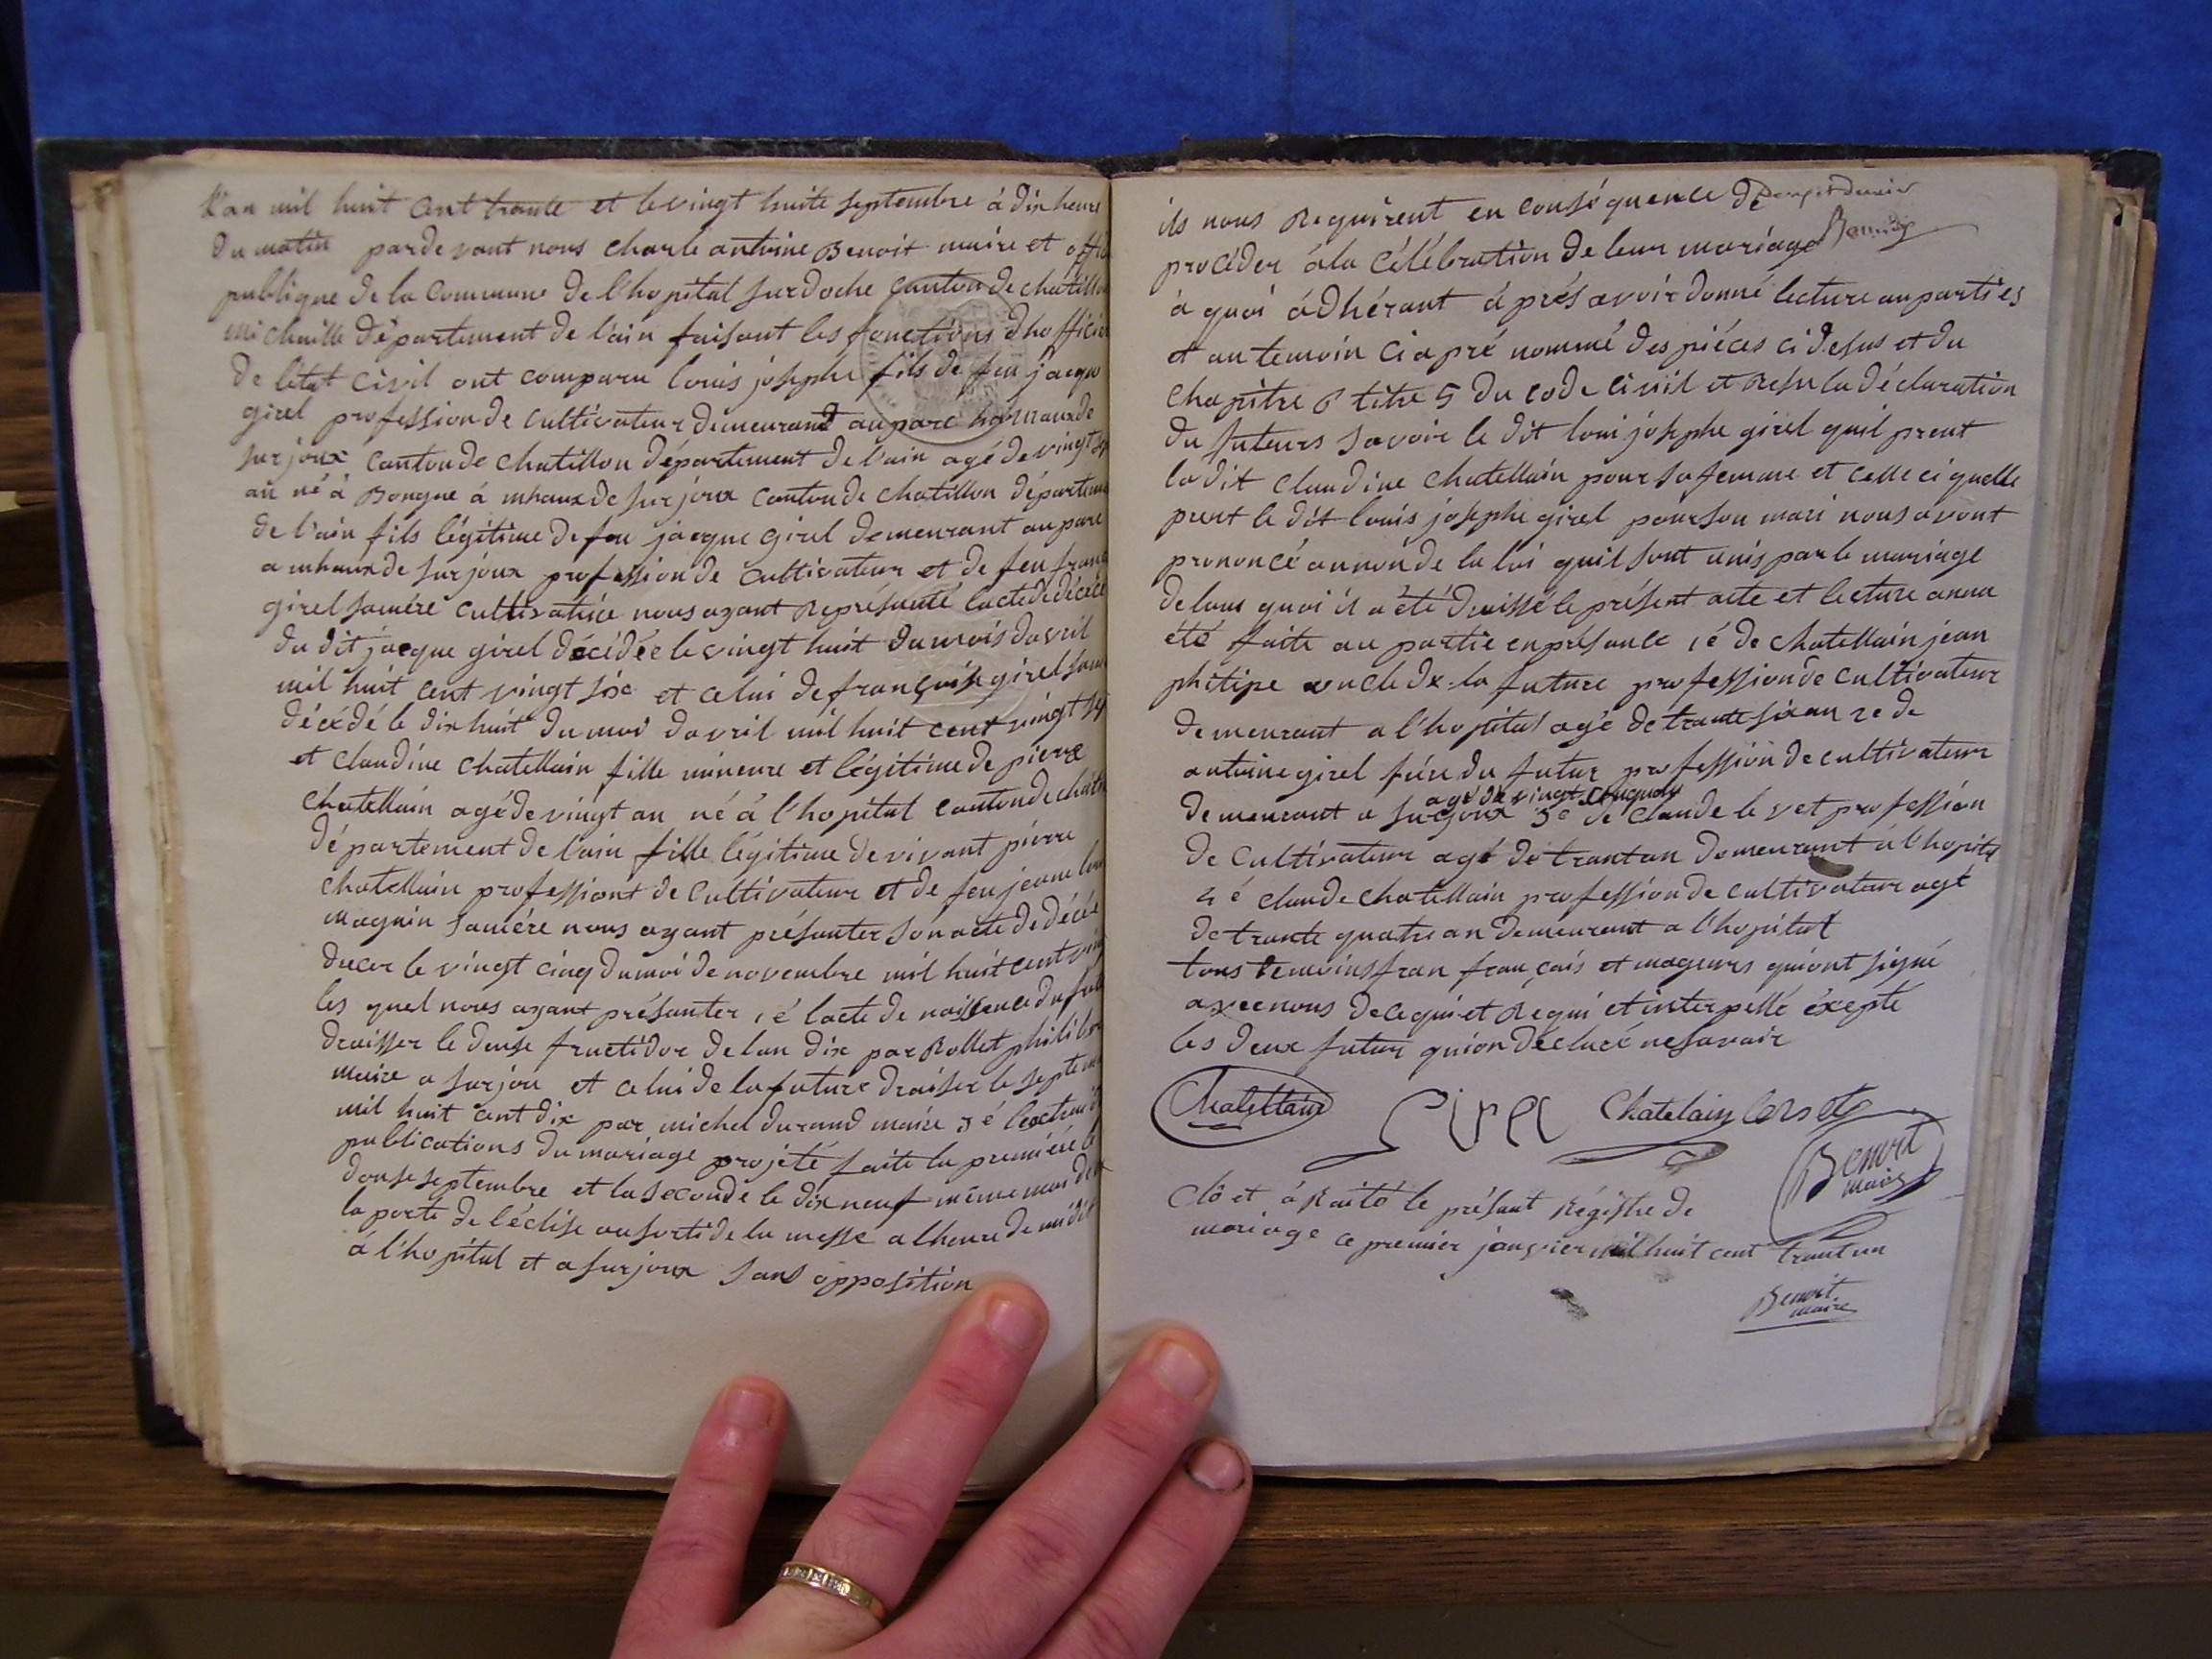 L'an mil huit cent trante et le vingt huite septembre à dix heure
du matin pardevant nous charle antoine Benoit maire et
publique de la commune de l'hopital surdoche canton de chatillon
michaille département de l'ain faisant les fonctions dhofficier
de létat civil ont comparu louis josephe fils de feu jacque
girel profession de cultivateur demeurant au parc
surjoux canton de chatillon département de l'ain agé de vingt
an né à Bongne à mhaux de surjoux canton de chatillon départem
de l'ain fils légitime de feu jacque girel demeurant au parc
a mhaux de surjoux profession de cultivateur et de feu fran
girel samére cultivatrice nous ayant Représanté lacte de décéé
du dit jacque girel décédée le vingt huit du mois davril
mil huit cent vingt six et celui de françoise girel sam
décédé le dix huit du moi davril mil huit cent vingt
et claudine chatellain fille mineure et légitime de pierre
chatellain agé de vingt an né à l'hopital canton de chati
département de l'ain fille légitime de vivant piérre
chatellain professiont de cultivateur et de feu jeanne
magnin samére nous ayant présanter son acte de décée
le vingt cinq du moi de novembre mil huit cent vin
les quel nous ayant présanter 1é lacte de naissence du fut
draisser le douse fructidor de lan dix par Rollet philib
maire a surjou et celui de la future draiser le sept
mil huit cent dix par michel durand maire 3é
publications du mariage projeté faite la premiére le
douse septembre et la seconde le dix neuf même mois
la porte de l'éclise au sorti de la messe a lheure de midi
à l'hopital et a surjoux sans opposition
ils nous Requirent en conséquence de
procéder àla célébration de leur mariage
à quoi ádhérant áprés avoir donné lecture au parti es
et au temoin ci apré nommé des piéces ci desus et du
chapitre 6 titre 5 du code civil et Resu la déclaration
du futeurs savoir le dit loui josephe girel quil prent
ladit claudine chatellain pour sa femme et celle ci quelle
prent le dit louis josephe girel pour son mari nous avont
prononcé aunon de la loi quil sont unis par le mariage
de tous quoi il a été draissé le présent acte et lecture anna
été faite au partie en présance 1é de chatellain jean
philipe oncle de la future profession de cultivateur
demeurant a l'hopital agé de trante six an 2e de
antoine girel frére du futur profession de cultivateur
agé de vingt
demeurant a surjoux 3e de claude le vet profession
de cultivateur agé de trantan demeurant a l'hopital
4é claude chatellain profession de cultivateur agé
de trante quatre an demeurant a l'hopital
tous temoins fran français et mageurs qui ont signé
avec nous dece qui et Requi et interpellé éxepté
les deux futur qui on déclaré ne savoir
Chatellain girel Chatelain
Benoit
maire
Clô et áraité le présant Régistre de
mariage ce premier janvier mil huit cent trant un
Benoit
maire